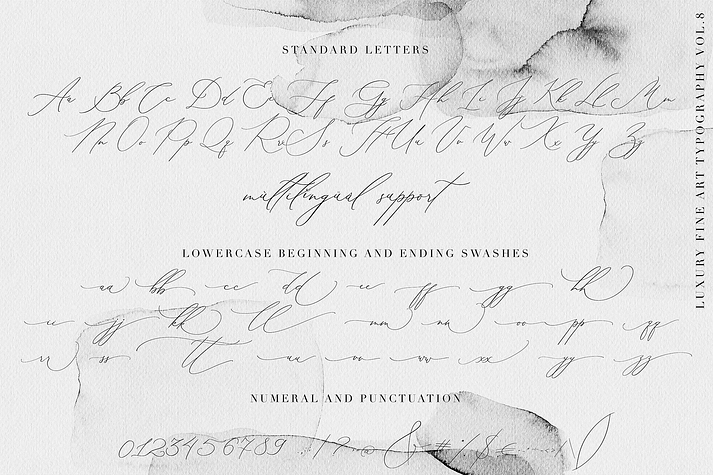 STANDARD LETTERS
Aa Bb Cc Dd Ee Ff Gg Hh Ii Jj Kk Ll Mm
Nn Oo Pp Qq Rr Ss Tt Uu Vv Ww Xx Yy Zz
multilingual support
LOWERCASE BEGINNING AND ENDING SWASHES
aa bb cc dd ee ff gg hh
ii jj kk ll mm nn oo pp qq
rr ss tt uu vv ww xx yy zz
NUMERAL AND PUNCTUATION
0123456789 : ! ? @ & # % $ £
LUXURY FINE ART TYPOGRAPHY VOL.8